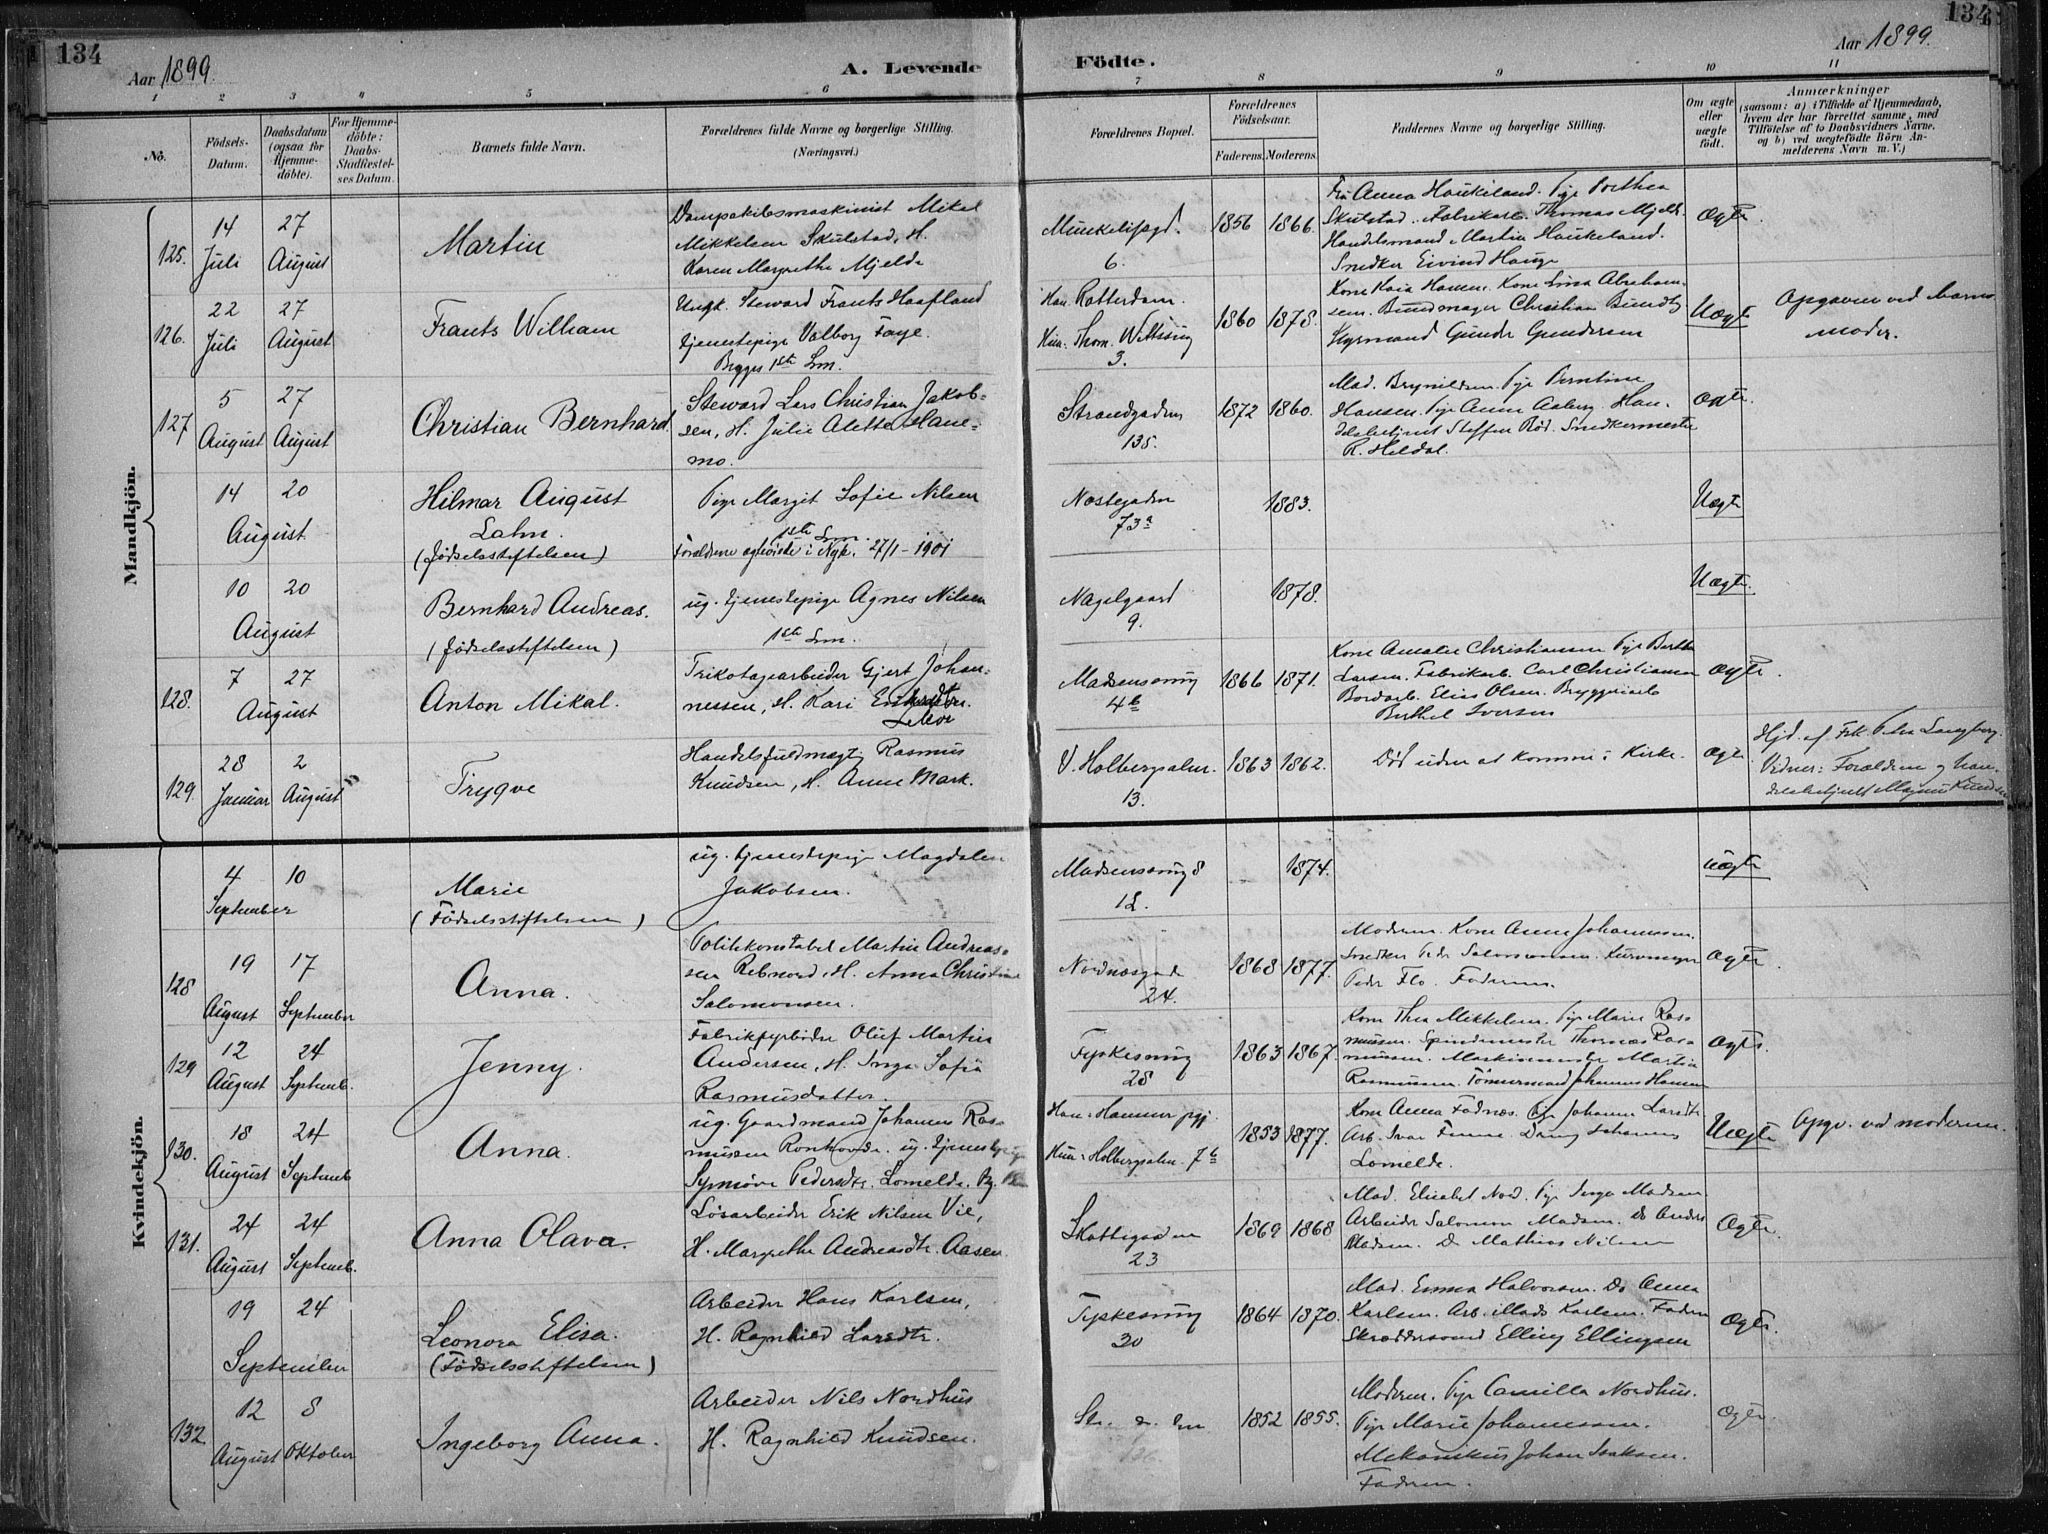 134
Aar 1899.
A. Levende
Födte.
Aar 1899.
134
1 2 3 4 5 6 7 8 9 10 11
No.
Födsels-
Datum.
Daabsdatum
(ogsaa for
Hjemme-
döbte).
For Hjemme-
döbte:
Daabs-
Stadfæstel-
ses Datum.
Barnets fulde Navn.
Forældrenes fulde Navne og borgerlige Stilling.
(Næringsvei.)
Forældrenes Bopæl.
Forældrenes
Födselsaar.
Faderens. Moderens.
Faddernes Navne og borgerlige Stilling.
Om ægte
eller
uægte
födt.
Anmærkninger
(saasom: a) i Tilfælde af Hjemmedaab,
hvem der har forrettet samme, med
Tilföielse af to Daabsvidners Navne,
og b) ved uægtefödte Börn An-
melderens Navn m. V.)
Mandkjön.
125. 14 Juli 27 August
Martin
Dampskibsmaskinist Mikal
Mikkelsen Skulstad, H.
Karen Margrethe Mjelde
6.
1856 1866.
Handelsmand Martin Haukeland.
Snedker Eivind Hauge
Ægte.
126. 22 Juli 27 August
Frants William
Ungk. Steward Frants Haafland
tjenestepige Valborg Faye.
Begges 1ste Lm.
Han: Rotterdam.
3.
1860 1878.
Kone Kaia Hansen. Kone Lina Abraham-
sen. Bundtmager Christian
Styrmand Gunder Gundersen
Uægte
Opgaven ved barnets
moder.
127 5 August 27 August
Christian Bernhard.
Steward Lars Christian Jakob-
sen, H. Julie Alette Hane-
mo.
Strandgaden
135.
1872 1860.
Mad. Brynildsen. Pige Berntine
Hansen. Pige Anna Aaberg. Han-
delsbetjent Steffen Röd. Snedkermester
R. Heldal.
Ægte.
14 20 August
Hilmar August
Lahn.
(Födselsstiftelsen)
Pige Margit Sofie Nilsen
1ste Lm.
Forældrene ægteviede i Nyk. 27/1-1901
Nöstegaden
73a
1883.
Uægte
10 20 August
Bernhard Andreas.
(Födselsstiftelsen)
ug. tjenestepige Agnes Nilsen
1ste Lm.
Nagelgaard
9.
1878.
Uægte.
128. 7 27 August
Anton Mikal.
Trikotagearbeider Gjert Johan-
nessen, H. Kari
Madsensmug
4b
1866 1871.
Kone Amalie Christiansen Pige Bertha
Larsen. Fabrikarb. Carl Christiansen
Bordarb. Elias Olsen. Bryggeriarb
Berthel Iversen
Ægte.
129. 28 Januar 2 August
Trygve
Handelsfuldmægtig Rasmus
Knudsen, H. Anne Mark.
V. Holbergsalm.
13.
1863 1862.
Död uden at komme i Kirke.
Ægte.
Vidner: Forældrene og han-
delsbetjent Magnus Knudsen
Kvindekjön.
4 10 September
Marie
(Födselsstiftelsen)
ug. tjenestepige Magdalene
Jakobsen.
1874.
Uægte
128 19 August 17 September
Anna.
Politikonstabel Martin Andreas-
sen Rebnord, H. Anna Christine
Salomonsen.
Nordnæsgade
24.
1868 1877.
Moderen. Kone Anna Johannessen.
Snedker Peder Salomonsen. Kurvmager
Peder Flo. Faderen.
Ægte.
129 12 August 24 Septemb.
Jenny.
Fabrikfyrböder Oluf Martin
Andersen, H. Inga Sofia
Rasmusdatter.
28
1863 1867.
Kone Thea Mikkelsen. Pige Marie Ras-
mussen. Spindemester Thomas Ras-
mussen. Maskinmester Martin
Rasmussen. Tömmermand Johannes Hansen
Ægte.
130. 18 August 24 Septemb
Anna.
ug. Gaardmand Johannes Ras-
mussen ug. tjenestepige
Synnöve Pedersdtr. Lomelde.
Hun: Holbergsalm. 7b
1853 1877.
Kone Anna Fadnæs. Pige Johanne Larsdtr
Arb. Ivar
Lomelde.
Uægte
Opgv. ved moderen.
131. 24 August 24 Septemb.
Anna Olava.
Lösarbeider Erik Nilsen Vie,
H. Margrethe Andreasdtr. Aasen.
Skottegaden
23
1869 1868
Mad. Elisabet Nord. Pige Inga Madsen.
Arbeider Salomon Madsen. Do Anders
Madsen. Do Mathias Nilsen
Ægte.
19 24 September
Leonora Elisa.
(Födselsstiftelsen)
Arbeider Hans Karlsen,
H. Ragnhild Larsdtr.
Tyskesmug
20
1864 1870.
Mad. Emma Halvorsen. Do Anna
Karlsen. Arb. Mads Karlsen. Faderen
Skræddersvend Elling Ellingsen
Ægte.
132. 12 August 8 Oktober
Ingeborg Anna.
Arbeider Nils Nordhus
H. Ragnhild Knudsen.
1852 1855.
Moderen. Pige Camilla Nordhus.
Pige Marie Johannessen.
Mekanikus Johan Isaksen.
Faderen.
Ægte.